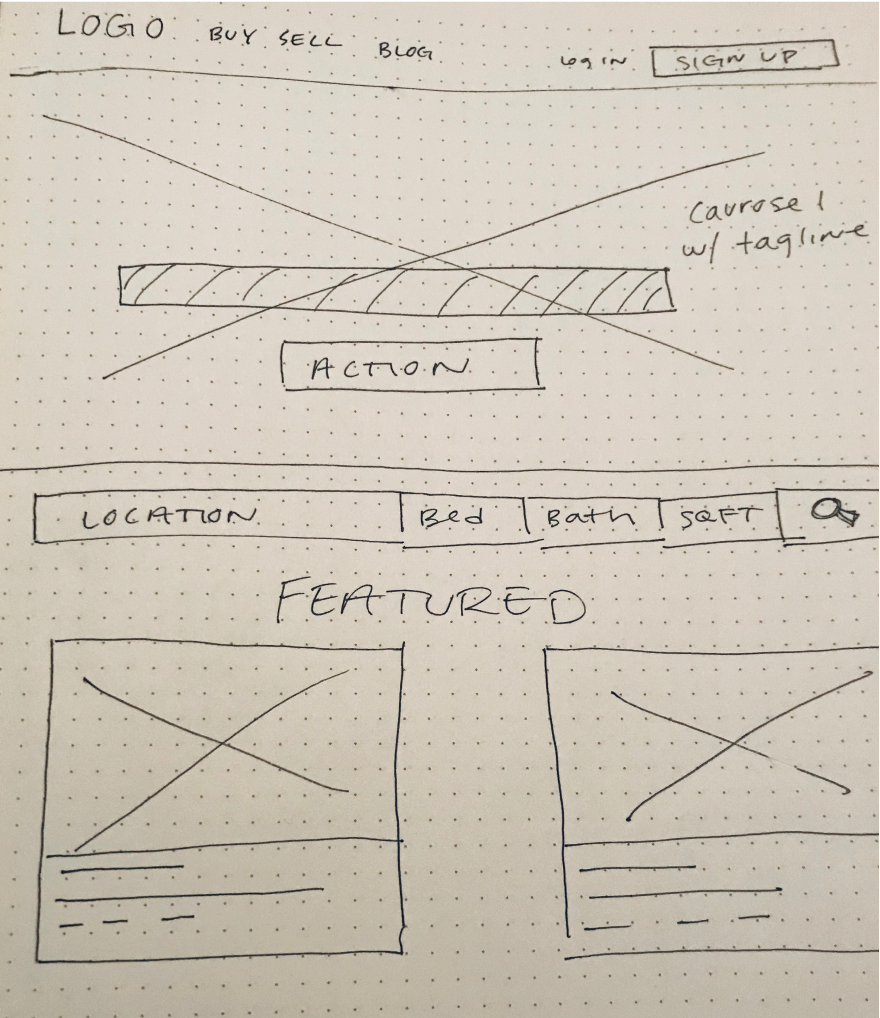 LOGO BUY SELL BLOG LOG IN SIGN UP
Caurosel
w/ tagline
ACTION
LOCATION Bed Bath SQFT
FEATURED